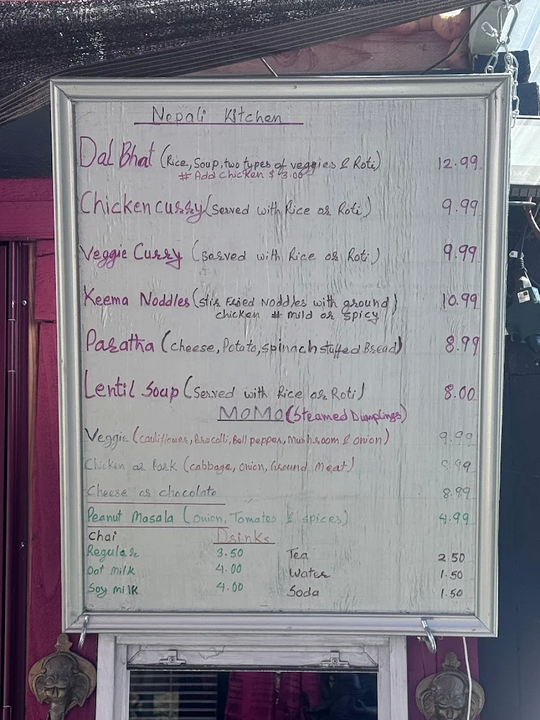 Nepali Kitchen
Dal Bhat (Rice, Soup, two types of veggies & Roti) 12.99
# Add chicken $ 3.00
Chicken curry (served with Rice or Roti) 9.99
Veggie Curry (served with Rice or Roti) 9.99
Keema Noddles (stir fried Noddles with ground 10.99
chicken # mild or spicy
Paratha (cheese, Potato, spinach stuffed Bread) 8.99
Lentil Soup (Served with Rice or Roti) 8.00
MOMO (Steamed Dumplings)
Veggie (cauliflower, Brocolli, Bell pepper, Mushroom & onion) 9.99
Chicken or Pork (cabbage, onion, Ground Meat) 9.99
Cheese or chocolate 8.99
Peanut Masala (onion, Tomatos & spices) 4.99
Chai Drinks
Regular 3.50 Tea 2.50
Oat milk 4.00 Water 1.50
Soy milk 4.00 Soda 1.50